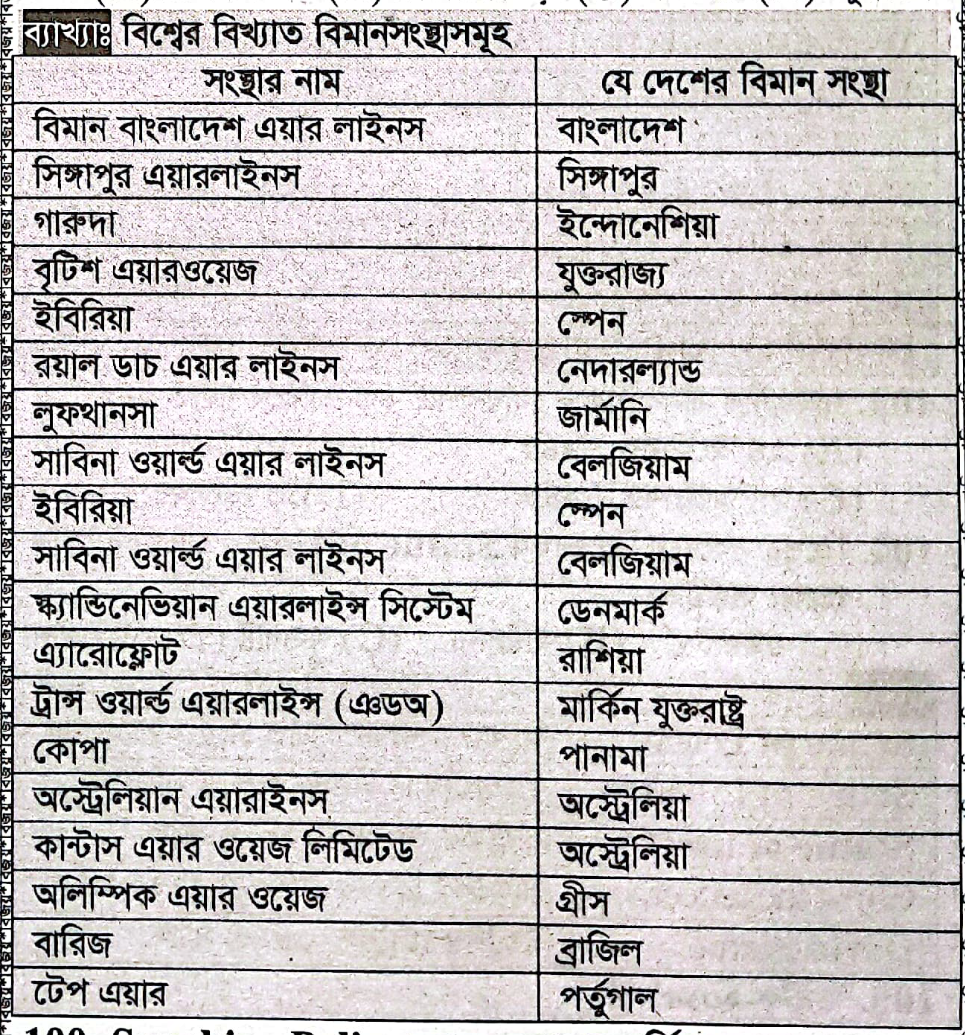 ব্যাখ্যাঃ বিশ্বের বিখ্যাত বিমানসংস্থাসমূহ
সংস্থার নাম যে দেশের বিমান সংস্থা
বিমান বাংলাদেশ এয়ার লাইনস বাংলাদেশ
সিঙ্গাপুর এয়ারলাইনস সিঙ্গাপুর
গারুদা ইন্দোনেশিয়া
বৃটিশ এয়ারওয়েজ যুক্তরাজ্য
ইবিরিয়া স্পেন
রয়াল ডাচ এয়ার লাইনস নেদারল্যান্ড
লুফথানসা জার্মানি
সাবিনা ওয়ার্ল্ড এয়ার লাইনস বেলজিয়াম
ইবিরিয়া স্পেন
সাবিনা ওয়ার্ল্ড এয়ার লাইনস বেলজিয়াম
স্ক্যান্ডিনেভিয়ান এয়ারলাইন্স সিস্টেম ডেনমার্ক
এ্যারোফ্লোট রাশিয়া
ট্রান্স ওয়ার্ল্ড এয়ারলাইন্স (ঞডঅ) মার্কিন যুক্তরাষ্ট্র
কোপা পানামা
অস্ট্রেলিয়ান এয়ারাইনস অস্ট্রেলিয়া
কান্টাস এয়ার ওয়েজ লিমিটেড অস্ট্রেলিয়া
অলিম্পিক এয়ার ওয়েজ গ্রীস
বারিজ ব্রাজিল
টেপ এয়ার পর্তুগাল